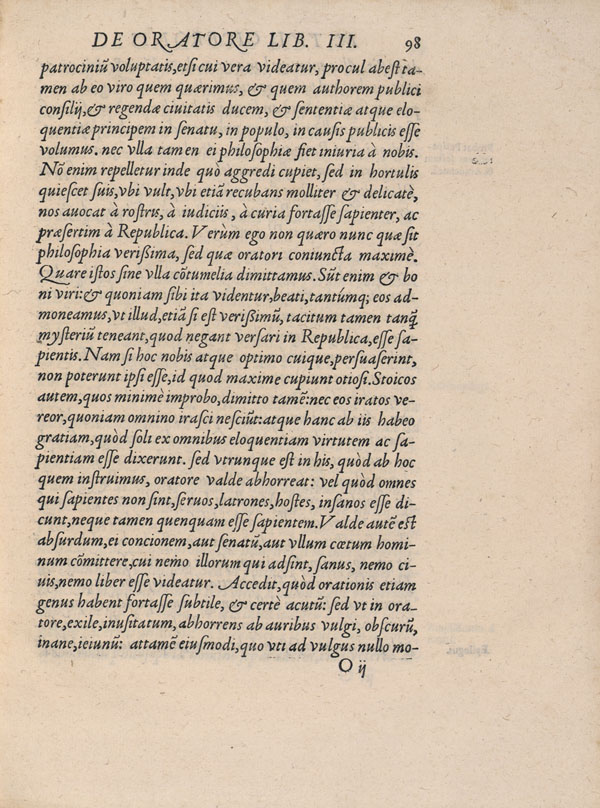 DE ORATORE LIB. III. 98
patrociniū voluptatis,etsi cui vera videatur, procul abest ta-
men ab eo viro quem quærimus, & quem authorem publici
consilij,& regendæ ciuitatis ducem, & sententiæ atque elo-
quentiæ principem in senatu, in populo, in causis publicis esse
volumus. nec vlla tamen ei philosophiæ fiet iniuria à nobis.
Nō enim repelletur inde quò aggredi cupiet, sed in hortulis
quiescet suis,vbi vult,vbi etiā recubans molliter & delicatè,
nos auocat à rostris, à iudiciis, à curia fortasse sapienter, ac
præsertim à Republica. Verùm ego non quæro nunc quæ sit
philosophia verißima, sed quæ oratori coniuncta maximè.
Quare istos sine vlla cōtumelia dimittamus. Sūt enim & bo
ni viri:& quoniam sibi ita videntur,beati,tantúmq; eos ad-
moneamus,vt illud,etiā si est verißimū, tacitum tamen tanq̄
mysteriū teneant,quod negant versari in Republica,esse sa-
pientis. Nam si hoc nobis atque optimo cuique,persuaserint,
non poterunt ipsi esse,id quod maxime cupiunt otiosi. Stoicos
autem,quos minimè improbo,dimitto tamē:nec eos iratos ve-
reor,quoniam omnino irasci nesciūt:atque hanc ab iis habeo
gratiam,quòd soli ex omnibus eloquentiam virtutem ac sa-
pientiam esse dixerunt. sed vtrunque est in his, quòd ab hoc
quem instruimus, oratore valde abhorreat: vel quòd omnes
qui sapientes non sint,seruos,latrones,hostes, insanos esse di-
cunt,neque tamen quenquam esse sapientem. Valde autē est
absurdum,ei concionem,aut senatū,aut vllum cœtum homi-
num cōmittere,cui nemo illorum qui adsint, sanus, nemo ci-
uis,nemo liber esse videatur. Accedit,quòd orationis etiam
genus habent fortasse subtile, & certè acutū: sed vt in ora-
tore,exile,inusitatum, abhorrens ab auribus vulgi, obscurū,
inane,ieiunū: attamē eiusmodi,quo vti ad vulgus nullo mo-
O ij